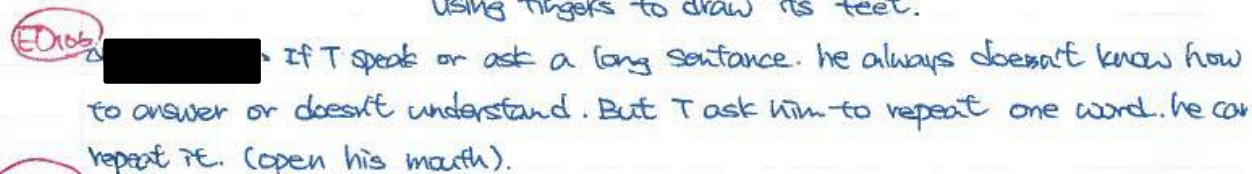 using fingers to draw its feet.
ED106
If T speak or ask a long sentance. he always doesn't know how
to answer or doesn't understand. But T ask him to repeat one word. he can
repeat it. (open his mouth).